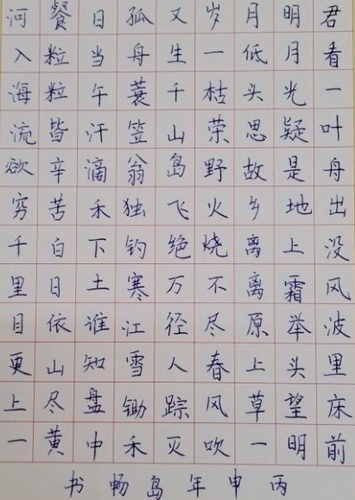 君看一叶舟出没风波里床前
明月光疑是地上霜举头望明
月低头思故乡离离原上草一
岁一枯荣野火烧不尽春风吹
又生千山岛飞绝万径人踪灭
孤舟蓑笠翁独钓寒江雪锄禾
日当午汗滴禾下土谁知盘中
餐粒粒皆辛苦白日依山尽黄
河入海流欲穷千里目更上一
丙申年岛畅书